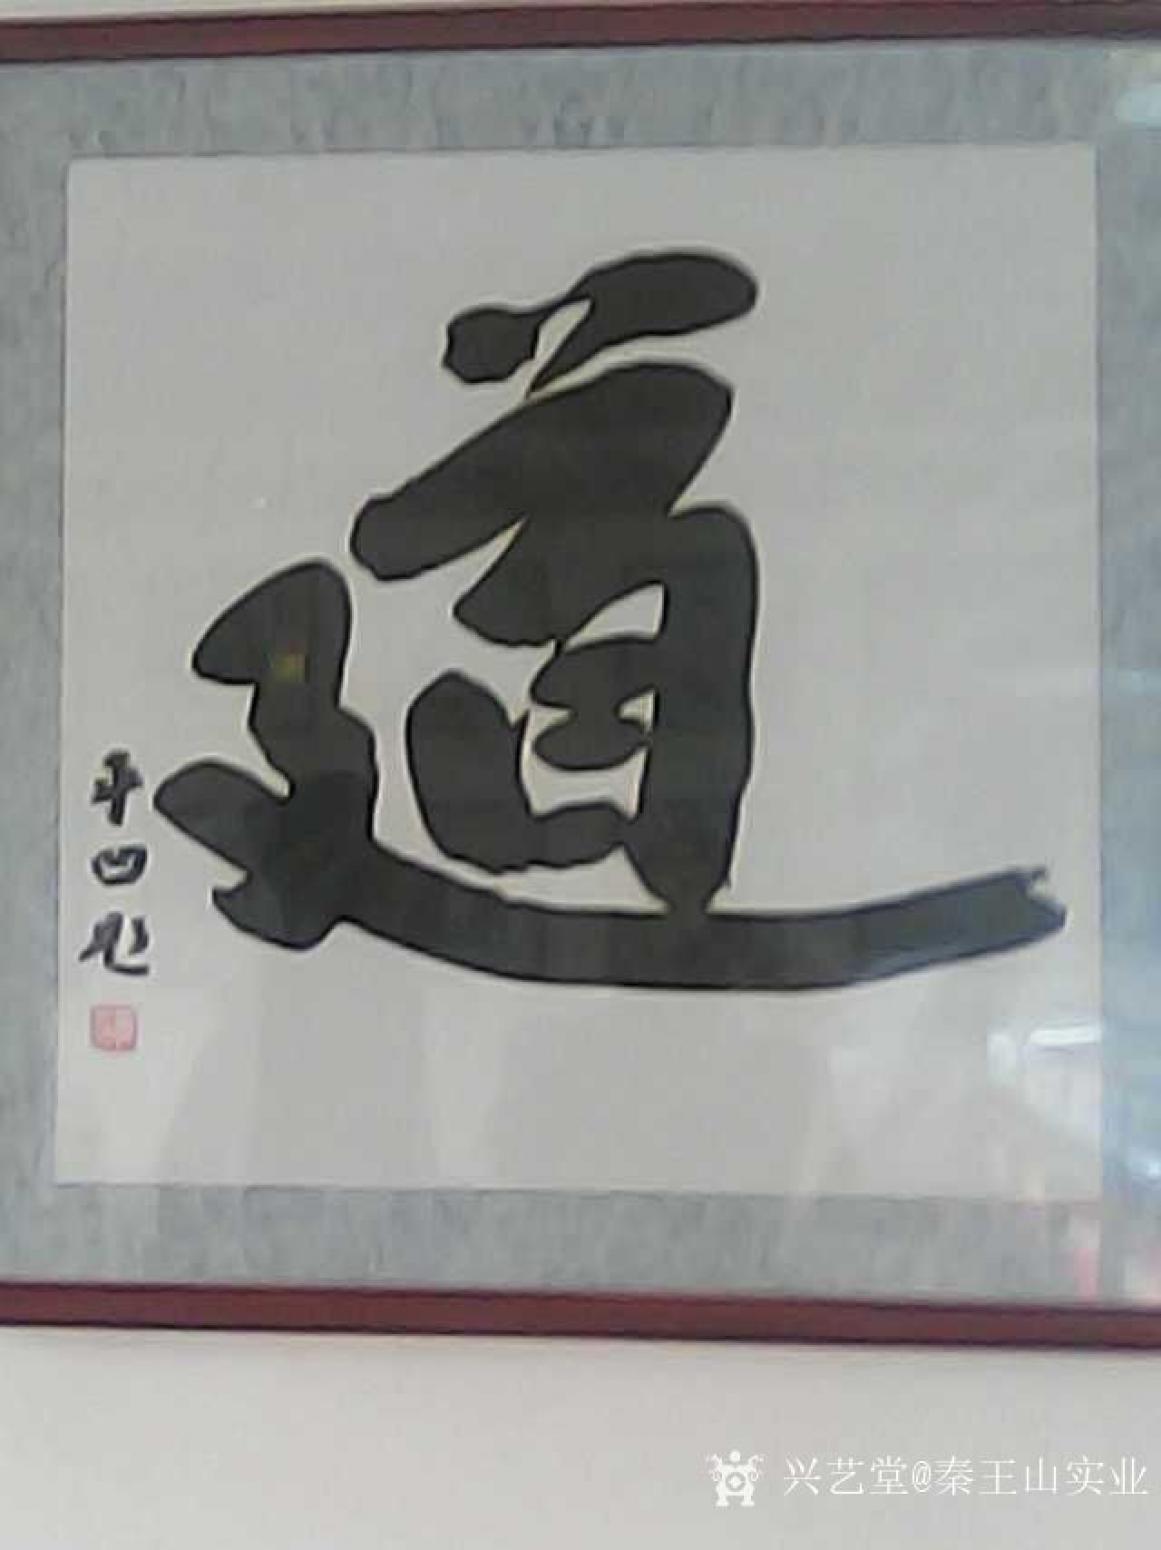 道
平凹题
兴艺堂@秦王山实业